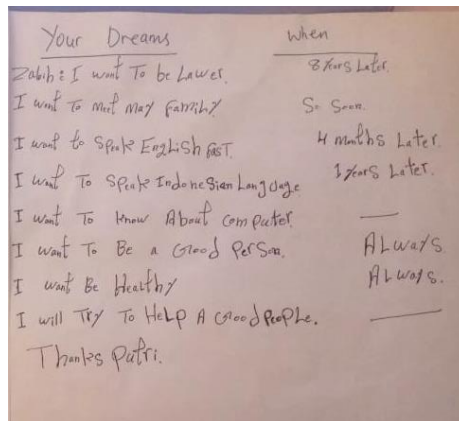 Your Dreams When
Zabih: I want To be Lawer. 8 Years Later.
I want To meet may Family. So Soon.
I want to Speak English fast. 4 months Later.
I want To Speak Indonesian Language 1 years Later.
I want To know About computer. —
I want To Be a Good Person. Always.
I want Be Healthy Always.
I will Try To Help A Good People. —
Thanks Putri.